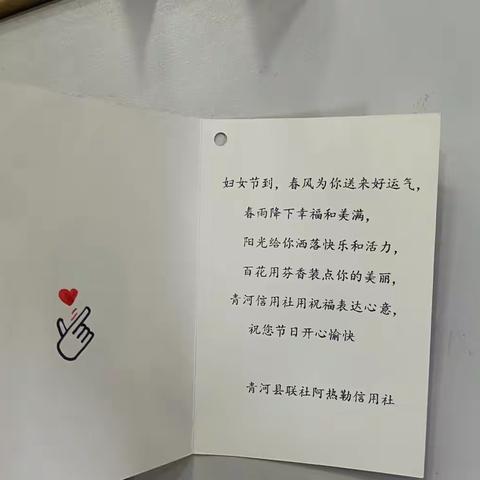 妇女节到，春风为你送来好运气，
春雨降下幸福和美满，
阳光给你洒落快乐和活力，
百花用芬香装点你的美丽，
青河信用社用祝福表达心意，
祝您节日开心愉快
青河县联社阿热勒信用社